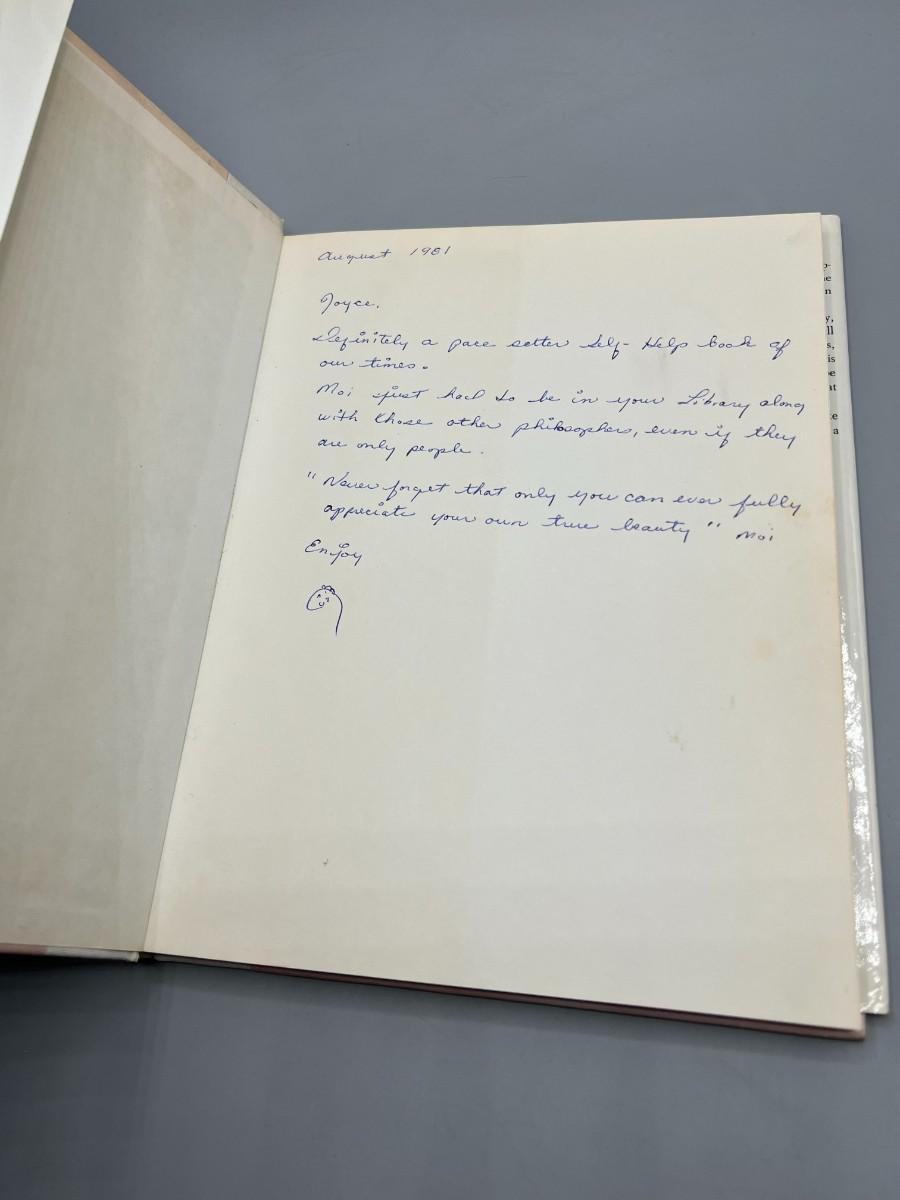 August 1981
Joyce,
Definitely a pace setter Self-Help book of
our times.
Moi just had to be in your Library along
with those other philosophers, even if they
are only people.
"Never forget that only you can ever fully
appreciate your own true beauty" Moi
Enjoy